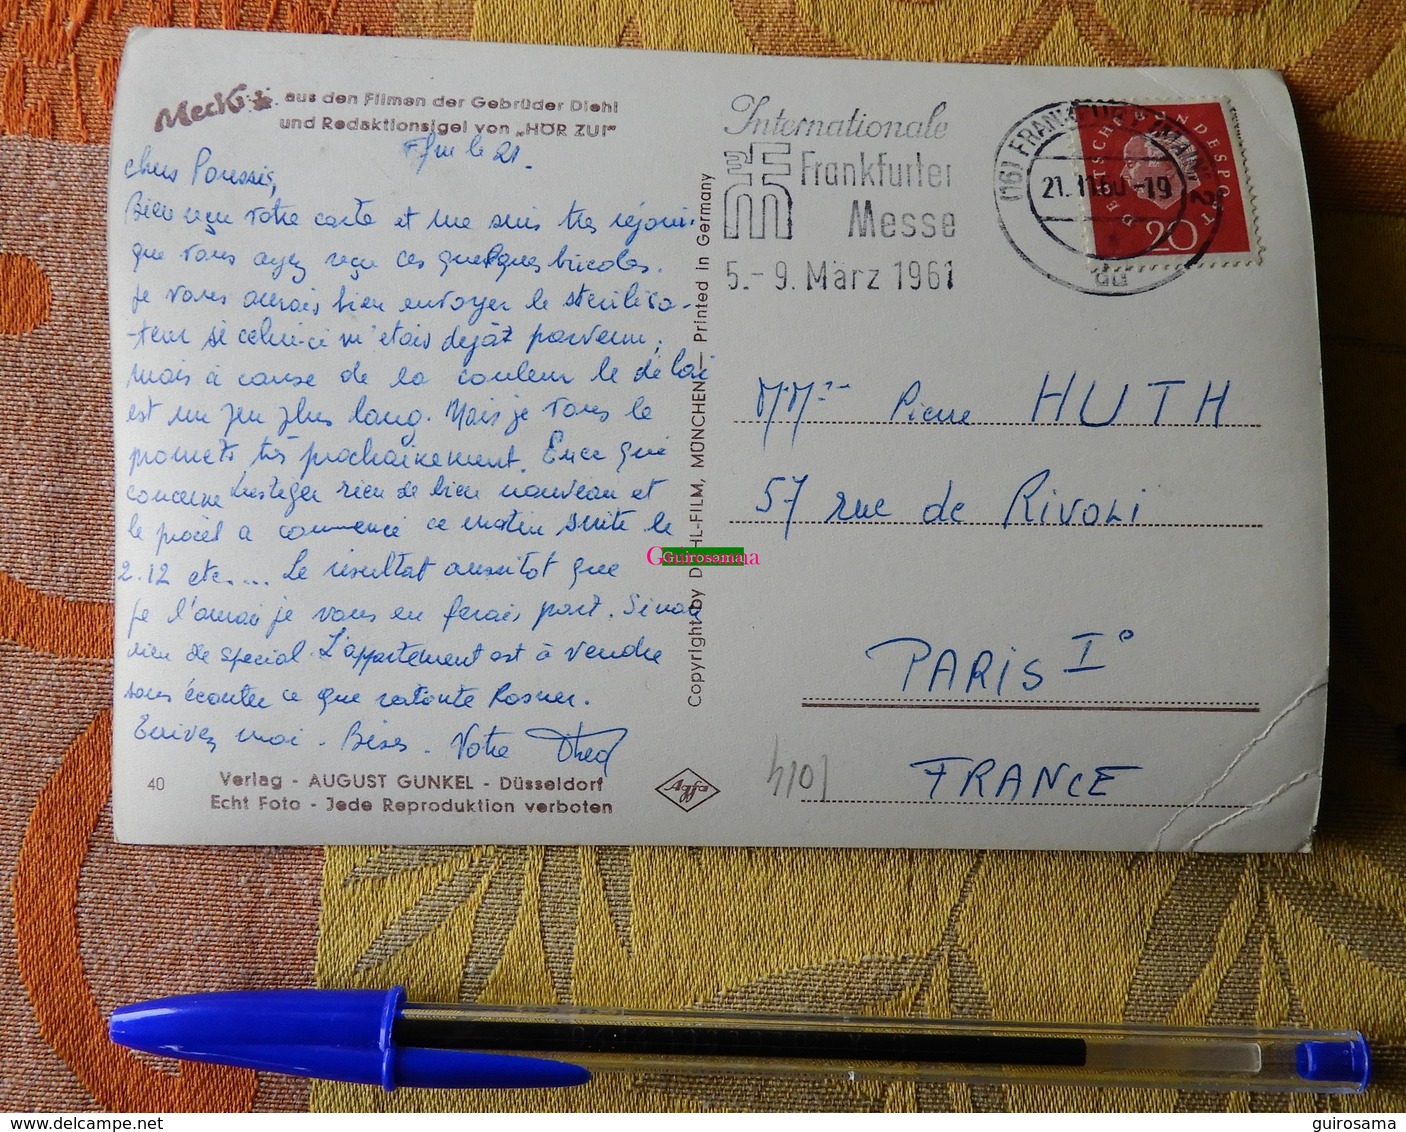 Mecki aus den Filmen der Gebrüder Diehl
und Redaktionsigel von „HÖR ZU!"
Ffm le 21.
Chers Poussis,
Bien reçu votre carte et me suis très réjoui
que vous ayez reçu ces quelques bricoles.
Je vous aurais bien envoyer le stérilisa-
-teur si celui-ci m'étais dejàt parvenu,
mais à cause de la couleur le délai
est un peu plus long. Mais je vous le
promets très prochainement. En ce qui
concerne rien de bien nouveau et
le procès a commencé ce matin suite le
2.12 etc.... Le résultat aussitot que
je l'aurai je vous en ferais part. Sinon
rien de special. L'appartement est à vendre
sans écouter ce que Rosner.
Ecrivez moi. Bises. Votre
40
Verlag - AUGUST GUNKEL - Düsseldorf
Echt Foto - Jede Reproduktion verboten
Agfa
Copyright by DIEHL-FILM, MÜNCHEN — Printed in Germany
Internationale
Frankfurter
Messe
5.-9. März 1961
(16) FRANKFURT (MAIN) 2
21.11.60-19
DEUTSCHE BUNDESPOST
20
MMme Pierre HUTH
57 rue de RIVOLI
PARIS I°
FRANCE
4101
Guirosama
Guirosama
guirosama